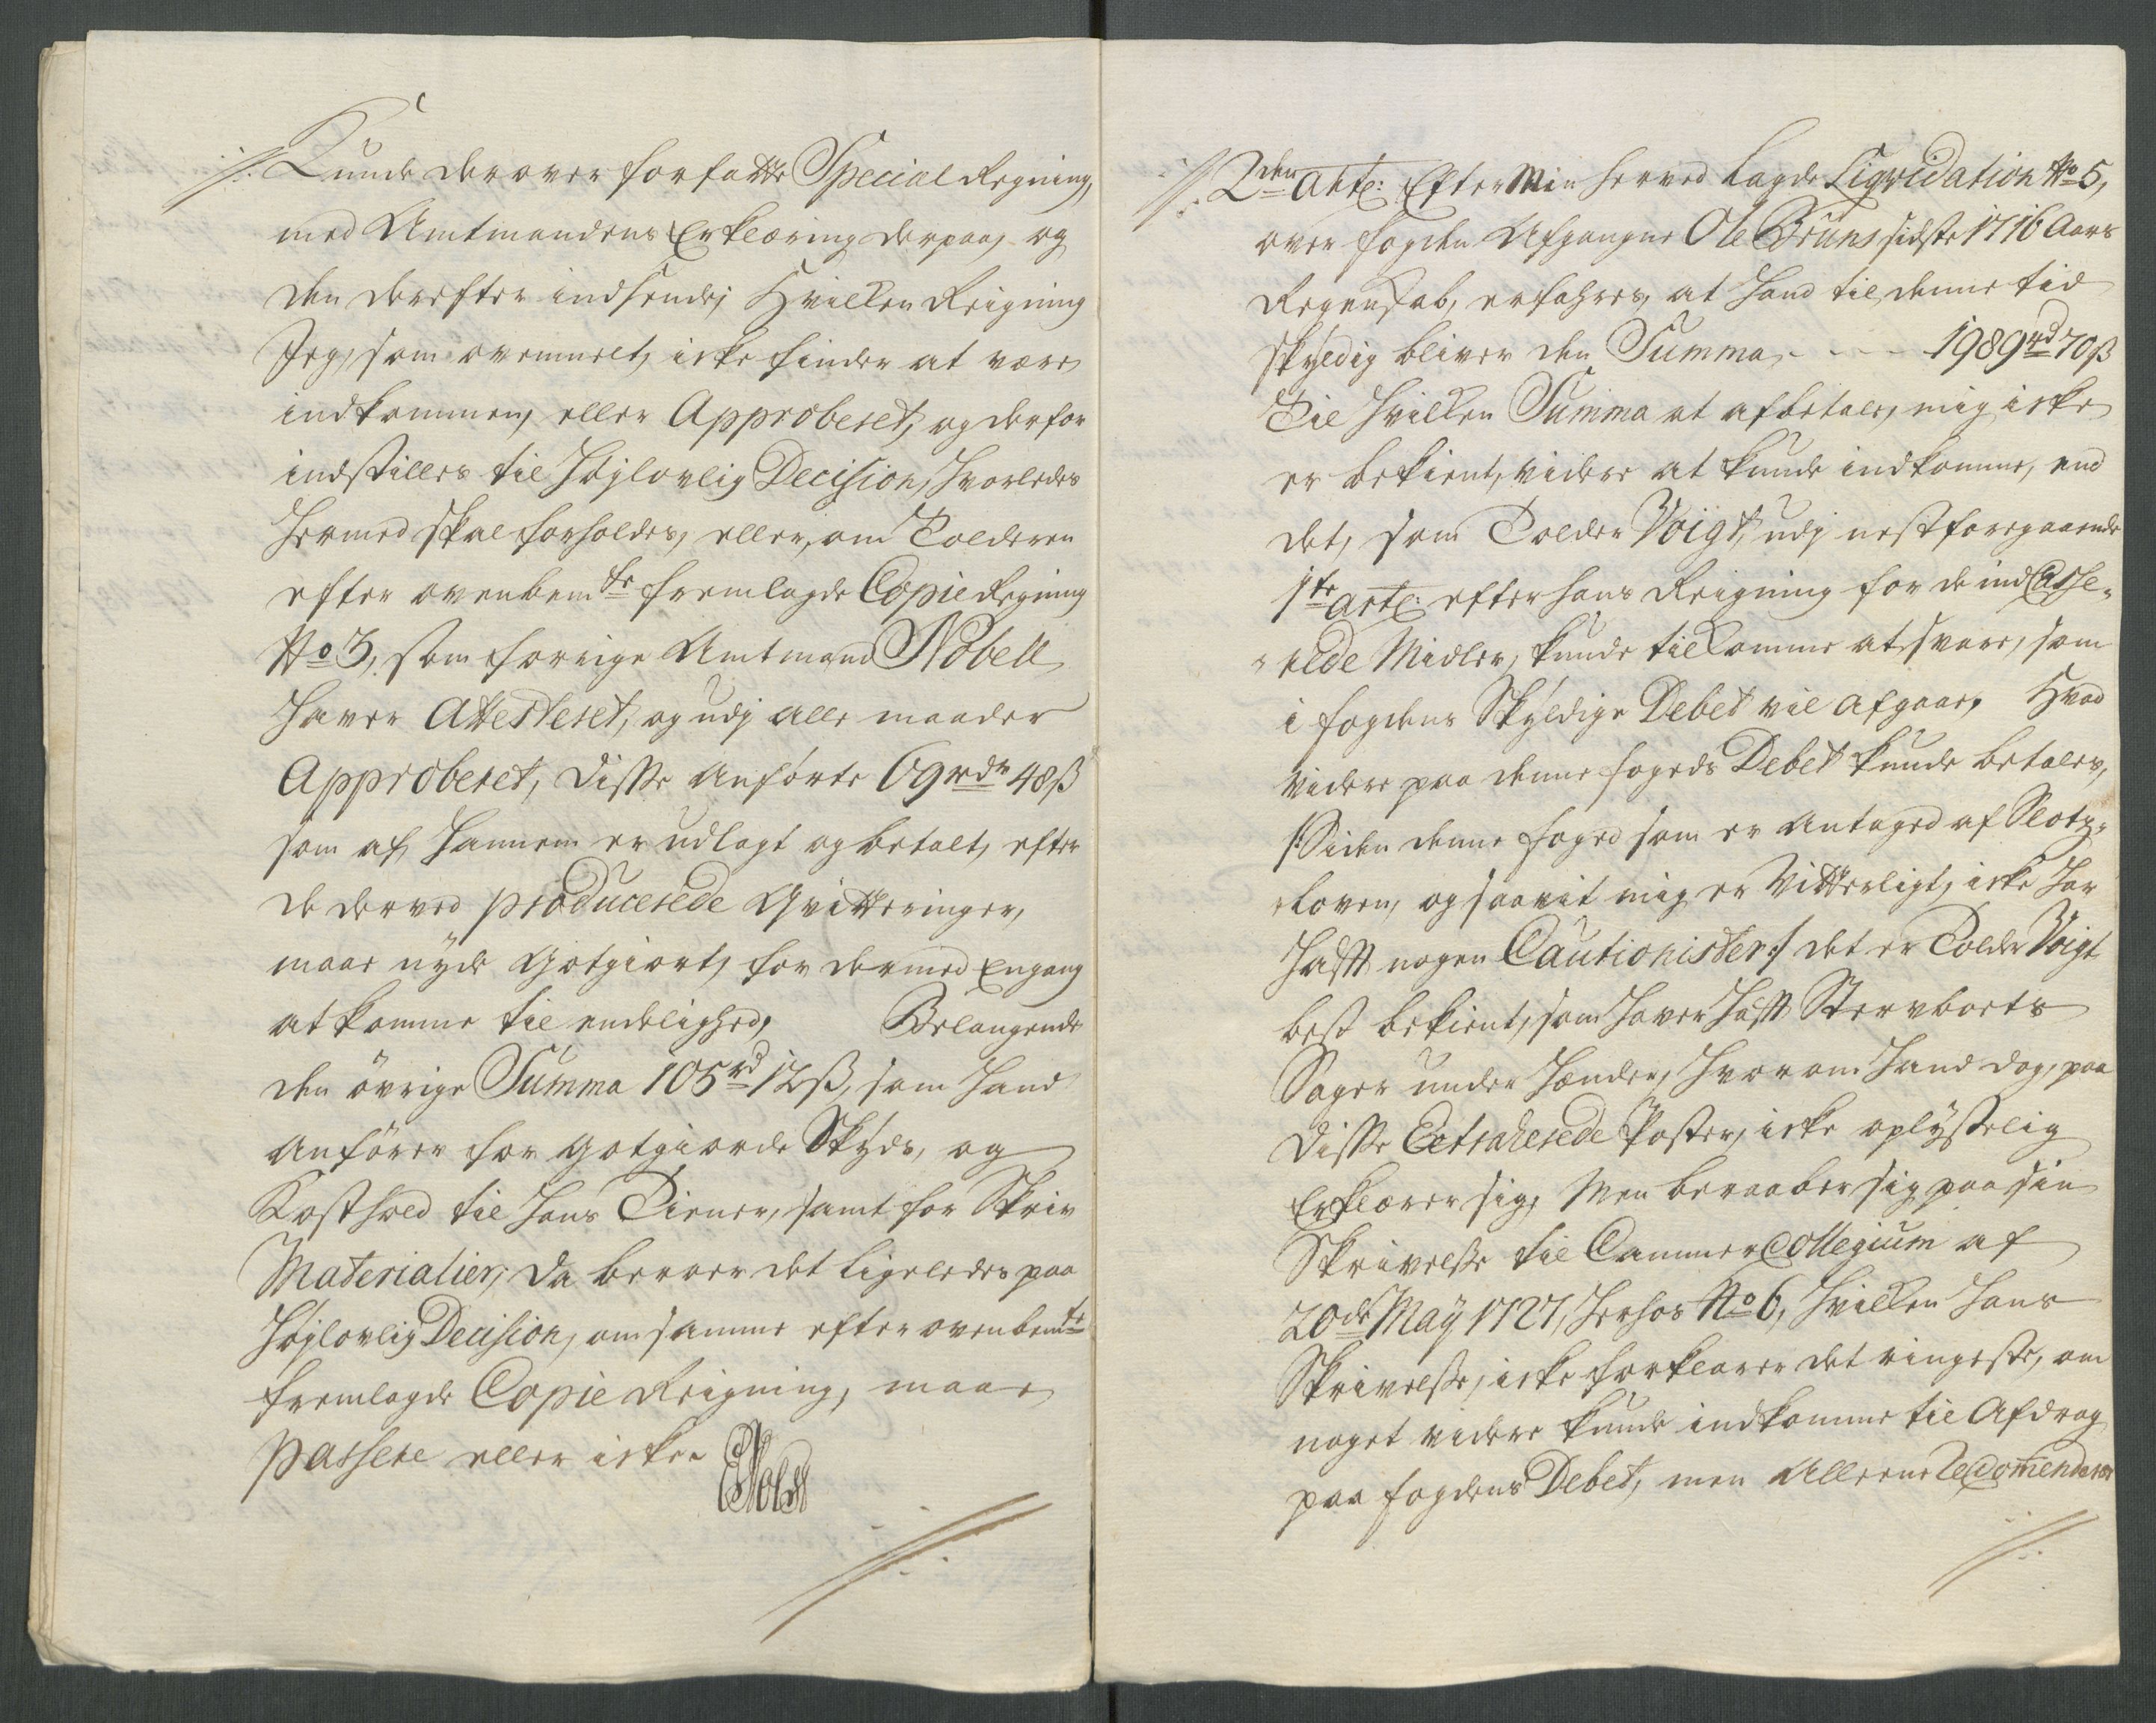 Kunde derover forfatte Special Regning,
med Amtmandens Erklæring derpaa, og
den derefter indsende; Hvilken Reigning
Jeg, som ovenmelt, icke finder at være
indkommen, eller Approberet, og derfor
indstilles til Høylovlig Decision, Hvorledes
Hermed skal forholdes, eller, om Tolderen
efter ovenbemte fremlagde Copie Regning
No 3, som forrige Amtmand Nobell
Haver Attesteret, og udj alle maader
Approberet, Disse Anførte 69 rdr 48 ß
som af Hannem er udlagt og betalt, efter
de derved producerede Qvitteringer,
maae nyde Gotgiort, for dermed Engang
at komme til endelighed, Belangende
den øvrige Summa 105 rd 12 ß, som Hand
Anfører for gotgiorde Skyds, og
Kosthold til Hans Tiener, samt for Skriv
Materialier, Da beroer det ligeledes paa
Høylovlig Decision, om samme efter ovenbemte
fremlagde Copie Reigning, maae
Passere eller icke.
2den Artl: Efter Min Herved lagde Liqvidation No 5,
over fogden Afgangne Ole Bruns sidste 1716 Aars
Regenskab, erfahres, at Hand til denne tid
skyldig bliver den Summa - - - 1989 rd 70 ß
Til Hvilken Summa at afbetale, mig icke
er bekient, videre at kunde indkomme, end
det, som Tolder Voigt, udj nestforegaaende
1te Artl: efter hans Reigning for de ind Casse-
rede Midler, kunde tilkomme at svare, som
i fogdens Skyldige Debet vil afgaae, Hvad
videre paa denne fogeds Debet kunde betales,
/: Siden denne foged som er Antaged af Slotz-
loven, og saavit mig er Vitterligt, icke Har
Hafft nogen Cautionister :/ det er Tolder Voigt
best bekient, som Haver Hafft Stervboets
Sager under Hænder, Hvorom Hand dog, paa
Disse Extraherede Poster, icke oplysselig
Erklærer sig, Men beraaber sig paa sin
Skrivelse til Cammer Collegium af
20de May 1727, Herhos No 6, Hvilken Hans
Skrivelse, icke forklarer det ringeste, om
noget videre kunde indkomme til Afdrag
paa fogdens Debet, men Alleene Recommenderer